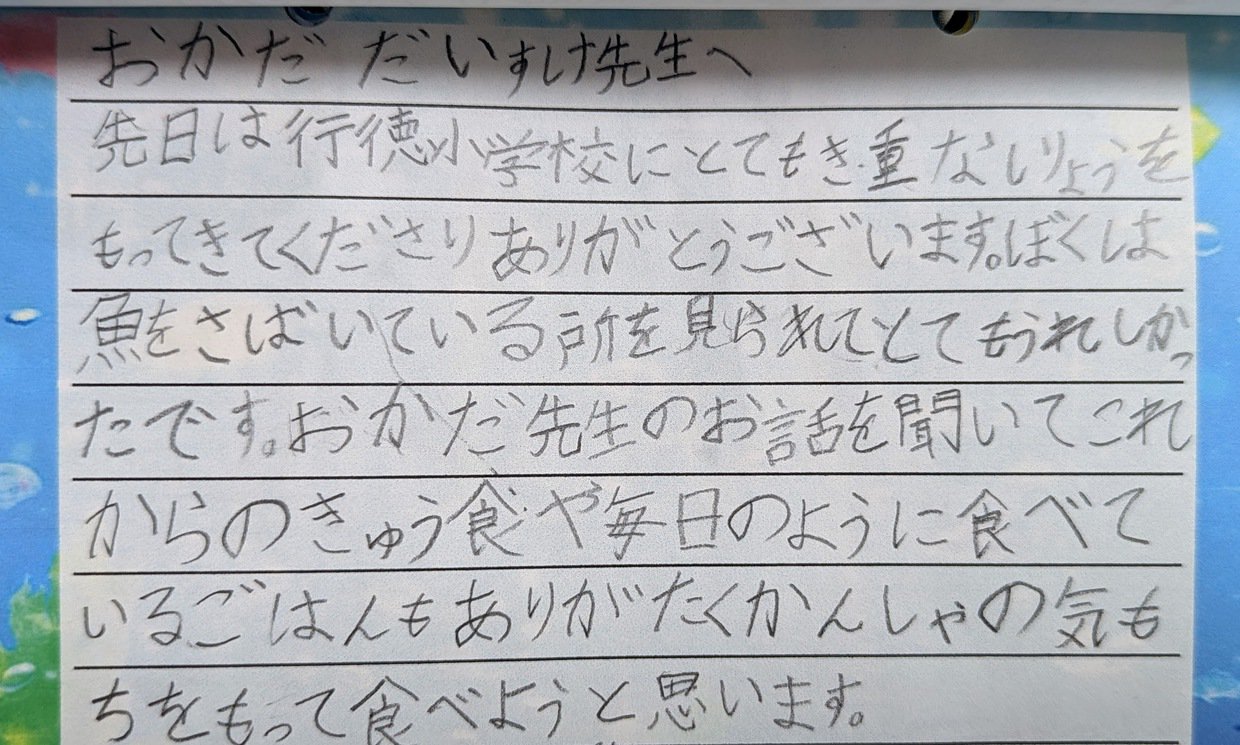 おかだ だいすけ先生へ
先日は行徳小学校にとてもき重なしりょうを
もってきてくださりありがとうございます。ぼくは
魚をさばいている所を見られてとてもうれしかっ
たです。おかだ先生のお話を聞いてこれ
からのきゅう食や毎日のように食べて
いるごはんもありがたくかんしゃの気も
ちをもって食べようと思います。